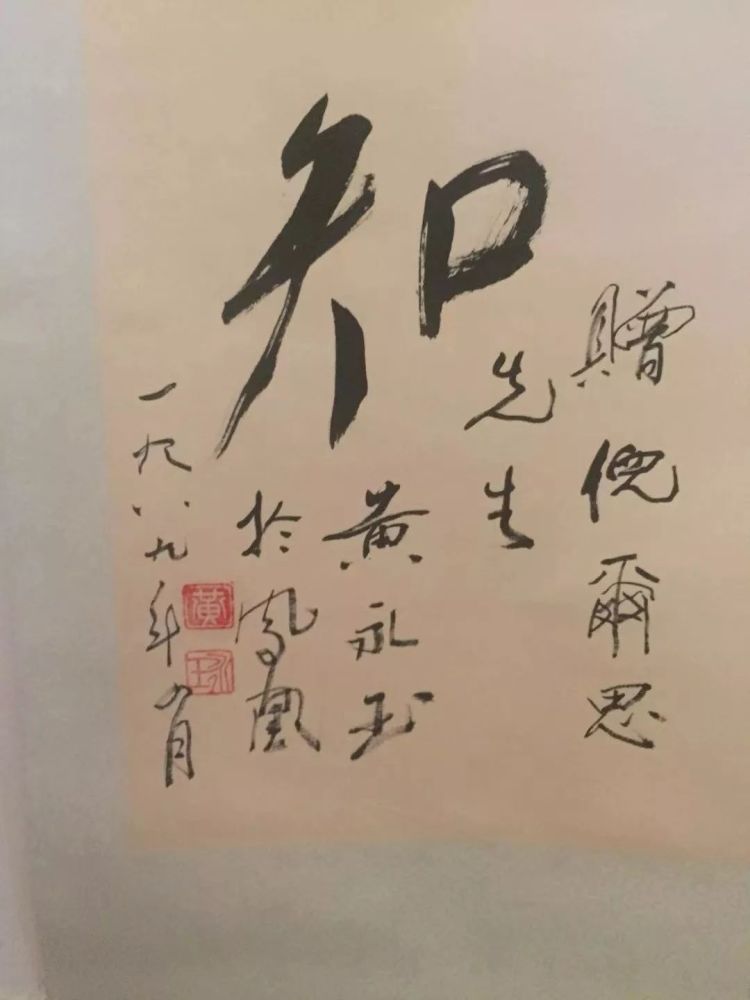 知
贈倪爾思
先生
黄永玉
於鳳凰
一九八九年月
黄
永玉